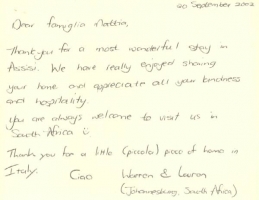 20 September 2002
Dear famiglia Mattia,
Thankyou for a most wonderful stay in
Assisi. We have really enjoyed sharing
your home and appreciate all your kindness
and hospitality.
You are always welcome to visit us in
South Africa
Thanks you for a little (piccola) piece of home in
Italy.
Ciao Warren & Lauren
(Johannesburg, South Africa)